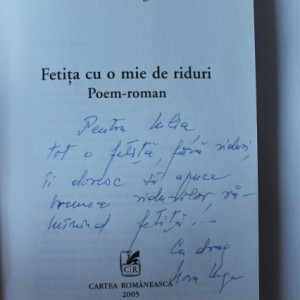 Fetița cu o mie de riduri
Poem-roman
Pentru Iulia,
tot o fetiță, fără riduri,
îi doresc să apuce
vremea ridurilor, ră-
mînînd fetiță...
Cu drag
Nora Iuga
CR
CARTEA ROMÂNEASCĂ
2005